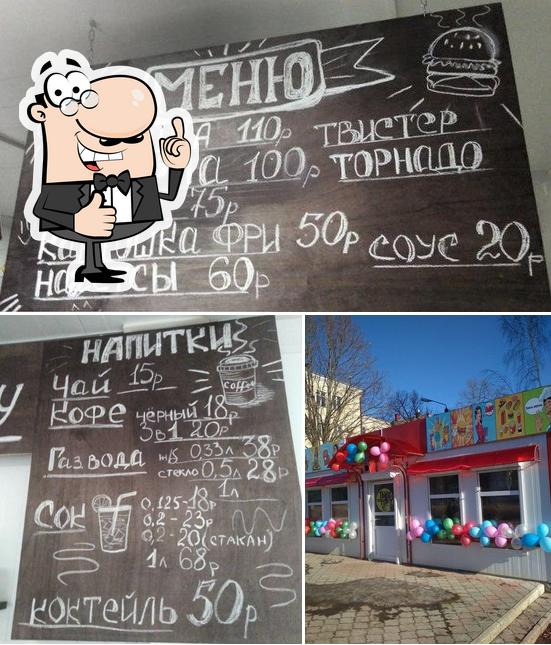 МЕНЮ
110р ТВИСТЕР
100р ТОРНАДО
75р
ФРИ 50р СОУС 20р
60р
НАПИТКИ
Чай 15р
coffee
Кофе чёрный 18р
3в1 20р
Газ.вода ж/б 0,33л 38р
стекло 0,5л 28р
1л
Сок 0,125-18р
0,2-23р
0,2-20(СТАКАН)
1л 68р
КОКТЕЙЛЬ 50р